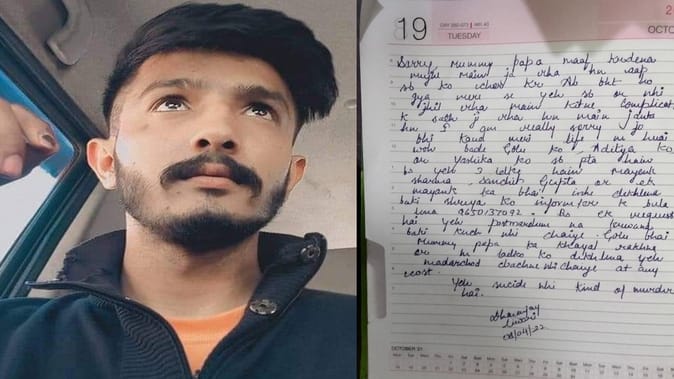 19
DAY 292-073 | WK 43
TUESDAY
2
OCTO
Sorry Mummy papa maaf kardena
mujhe main ja rha hn aap
sb ko chor kr Ab bht ho
gya mere se yeh sb or nhi
jhil rha main kitne complicat
k sath ji rha hn main janta
hn I am really sorry jo
bhi kand meri life m huai
woh bade Golu ko Aditya ko
or Yashika ko sb pta hain
bs yeh 3 ladke hain Mayank
sharma, Sanchit Gupta or ek
mayank ka bhai inhe dikhlana
baki shreya ko informer k bula
lena Bs ek request
hai yeh postmortum na karwana
baki kuch nhi chaiye. Golu bhai
Mummy papa ka khayal rakhna
or in ladko ko dikhlena yeh
madarchod bachne nhi chaiye at any
cost.
Yeh sucide nhi kind of murder
hai.
Dhananjay
Tiwari
08/04/22
OCTOBER 21